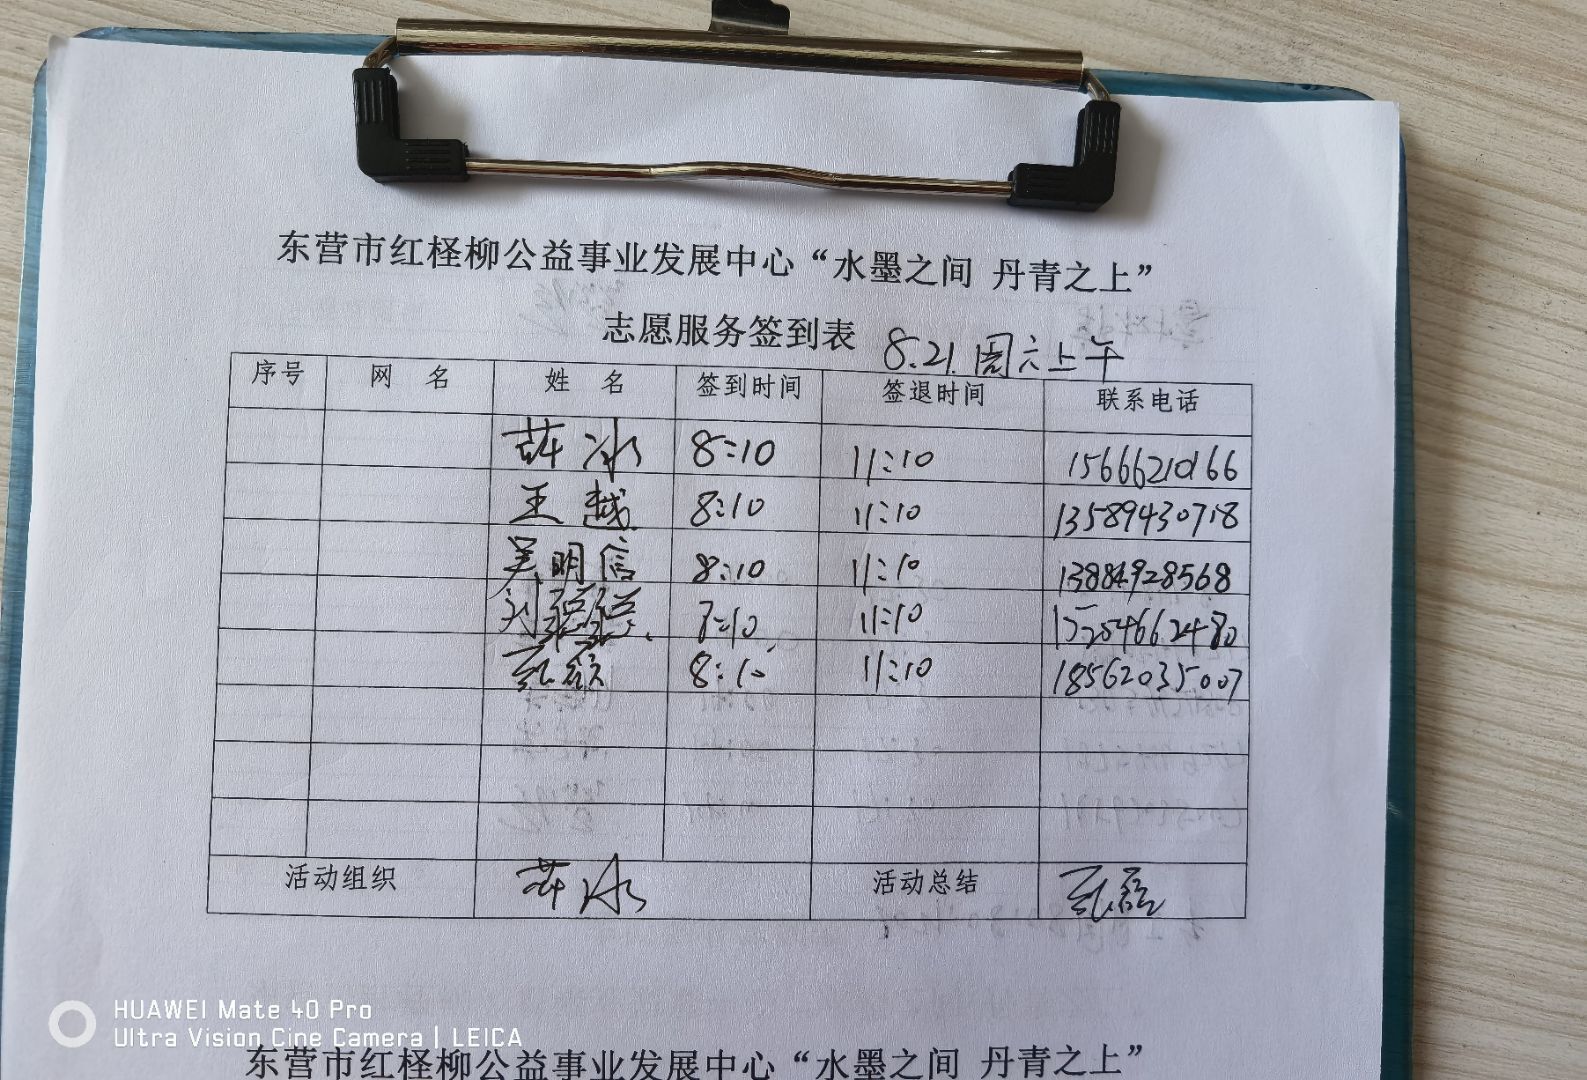 东营市红柽柳公益事业发展中心“水墨之间 丹青之上”
志愿服务签到表 8.21.周六上午
序号 网 名 姓 名 签到时间 签退时间 联系电话
薛冰 8:10 11:10 15666210166
王越 8:10 11:10 13589430718
吴明信 8:10 11:10 13884928568
刘 11:10 15254662480
8:10 11:10 18562035007
活动组织 薛冰 活动总结
HUAWEI Mate 40 Pro
Ultra Vision Cine Camera | LEICA
东营市红柽柳公益事业发展中心“水墨之间 丹青之上”